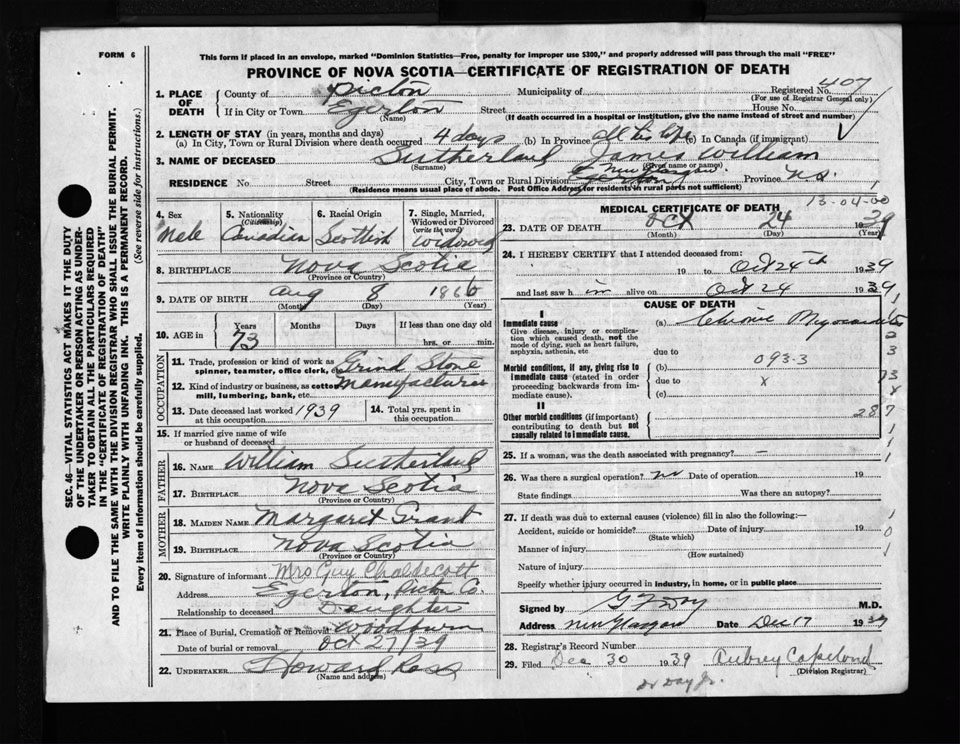 FORM 6
This form if placed in an envelope, marked "Dominion Statistics—Free, penalty for improper use $300," and properly addressed will pass through the mail "FREE"
PROVINCE OF NOVA SCOTIA—CERTIFICATE OF REGISTRATION OF DEATH
1. PLACE OF DEATH
County of Pictou Municipality of Registered No. 407
(For use of Registrar General only)
If in City or Town Egerton Street House No.
(Name) (If death occurred in a hospital or institution, give the name instead of street and number)
2. LENGTH OF STAY (in years, months and days)
(a) In City, Town or Rural Division where death occurred 4 days (b) In Province all his life (c) In Canada (if immigrant)
3. NAME OF DECEASED Sutherland James William
(Surname) (Given name or names)
RESIDENCE No. Street City, Town or Rural Division New Glasgow Egerton Province N.S.
(Residence means usual place of abode. Post Office Address for residents in rural parts not sufficient)
13-04-00
4. Sex Male
5. Nationality (Citizenship) Canadian
6. Racial Origin Scottish
7. Single, Married, Widowed or Divorced (write the word) Widowed
8. BIRTHPLACE Nova Scotia
(Province or Country)
9. DATE OF BIRTH Aug 8 1866
(Month) (Day) (Year)
10. AGE in Years Months Days If less than one day old
73 hrs. or min.
OCCUPATION
11. Trade, profession or kind of work as spinner, teamster, office clerk, etc. Grind Stone
12. Kind of industry or business, as cotton mill, lumbering, bank, etc. Manufacturer
13. Date deceased last worked at this occupation 1939
14. Total yrs. spent in this occupation
15. If married give name of wife or husband of deceased
FATHER
16. NAME William Sutherland
17. BIRTHPLACE Nova Scotia
(Province or Country)
MOTHER
18. MAIDEN NAME Margaret Grant
19. BIRTHPLACE Nova Scotia
(Province or Country)
20. Signature of informant Mrs Guy Chaldecott
Address Egerton, Pictou Co.
Relationship to deceased Daughter
21. Place of Burial, Cremation or Removal Woodburn
Date of burial or removal Oct 27/39
22. UNDERTAKER Howard Ross
(Name and address)
MEDICAL CERTIFICATE OF DEATH
23. DATE OF DEATH Oct 24 1939
(Month) (Day) (Year)
24. I HEREBY CERTIFY that I attended deceased from:
19 to Oct 24th 1939
and last saw him alive on Oct 24 1939
CAUSE OF DEATH
I
Immediate cause— (a) Chronic Myocarditis
Give disease, injury or complication which caused death, not the mode of dying, such as heart failure, asphyxia, asthenia, etc
due to
093.3
Morbid conditions, if any, giving rise to immediate cause (stated in order proceeding backwards from immediate cause).
(b)
due to x
(c)
II
287
Other morbid conditions (if important) contributing to death but not causally related to immediate cause.
25. If a woman, was the death associated with pregnancy? —
26. Was there a surgical operation? no Date of operation 19
State findings Was there an autopsy?
27. If death was due to external causes (violence) fill in also the following:—
Accident, suicide or homicide? Date of injury 19
(State which)
Manner of injury
(How sustained)
Nature of injury
Specify whether injury occurred in industry, in home, or in public place
Signed by G F Day M.D.
Address New Glasgow Date Dec 17 1939
28. Registrar's Record Number
29. Filed Dec 30 1939 Aubrey Copeland
(Division Registrar)
Dr Day Jr.
SEC. 46—VITAL STATISTICS ACT MAKES IT THE DUTY
OF THE UNDERTAKER OR PERSON ACTING AS UNDERTAKER
TO OBTAIN ALL THE PARTICULARS REQUIRED
IN THE "CERTIFICATE OF REGISTRATION OF DEATH"
AND TO FILE THE SAME WITH THE DIVISION REGISTRAR WHO SHALL ISSUE THE BURIAL PERMIT.
WRITE PLAINLY WITH UNFADING INK. THIS IS A PERMANENT RECORD.
Every item of information should be carefully supplied. (See reverse side for instructions.)